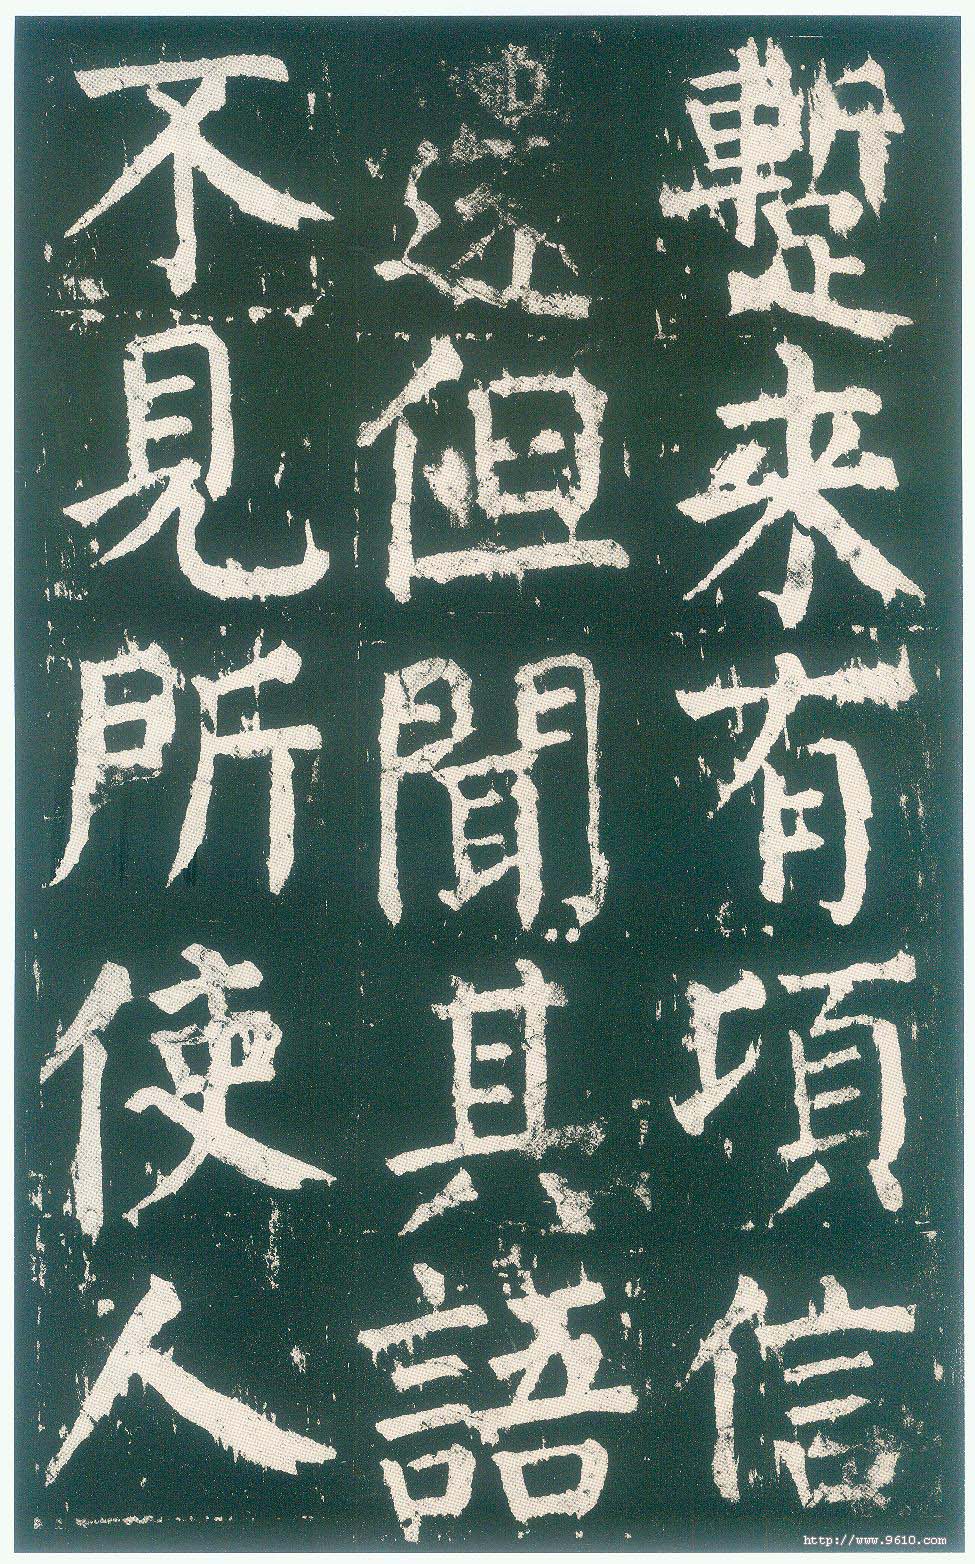 蹔來有頃信
還但聞其語
不見所使人
http://www.9610.com